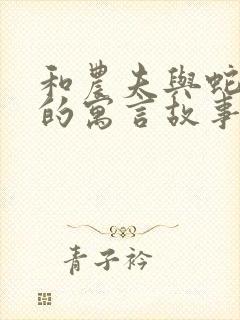 和農夫與蛇
的寓言故事
青子衿